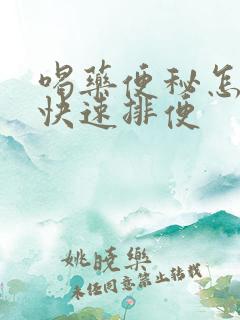 喝药便秘怎
快速排便
姚晓乐
未经同意禁止转载